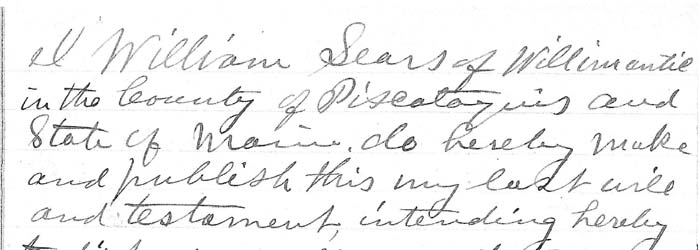 I William Sears of Willimantic
in the County of Piscataquis and
State of Maine, do hereby make
and publish this my last will
and testament, intending hereby